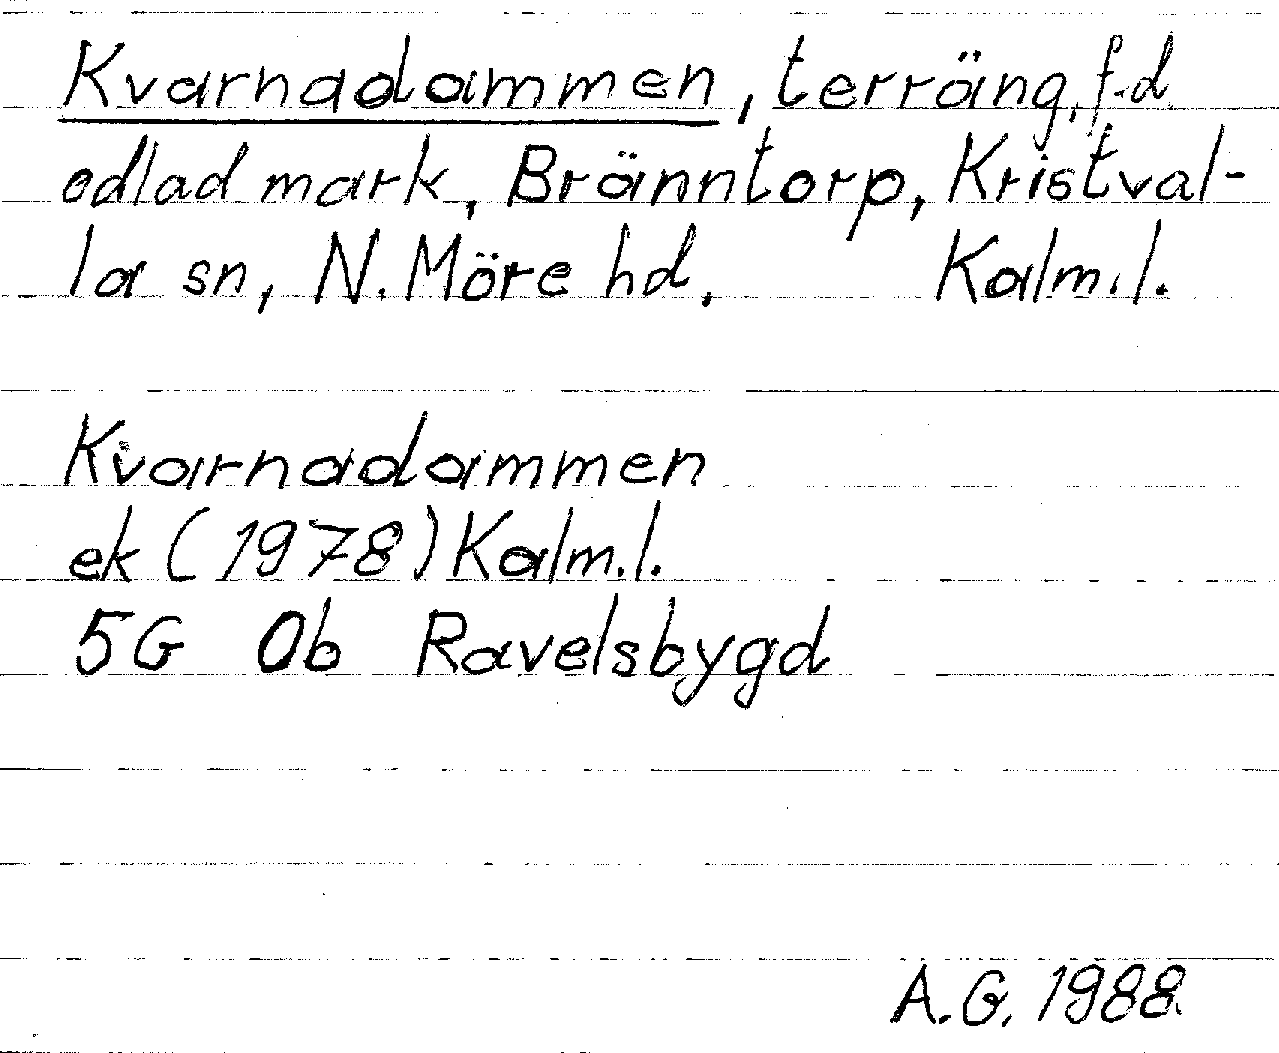 Kvarnadammen, terräng, f.d
odlad mark, Bränntorp, Kristval-
la sn, N. Möre hd, Kalm.l.
Kvarnadammen
ek (1978) Kalm.l.
5G 0b Ravelsbygd
A.G. 1988